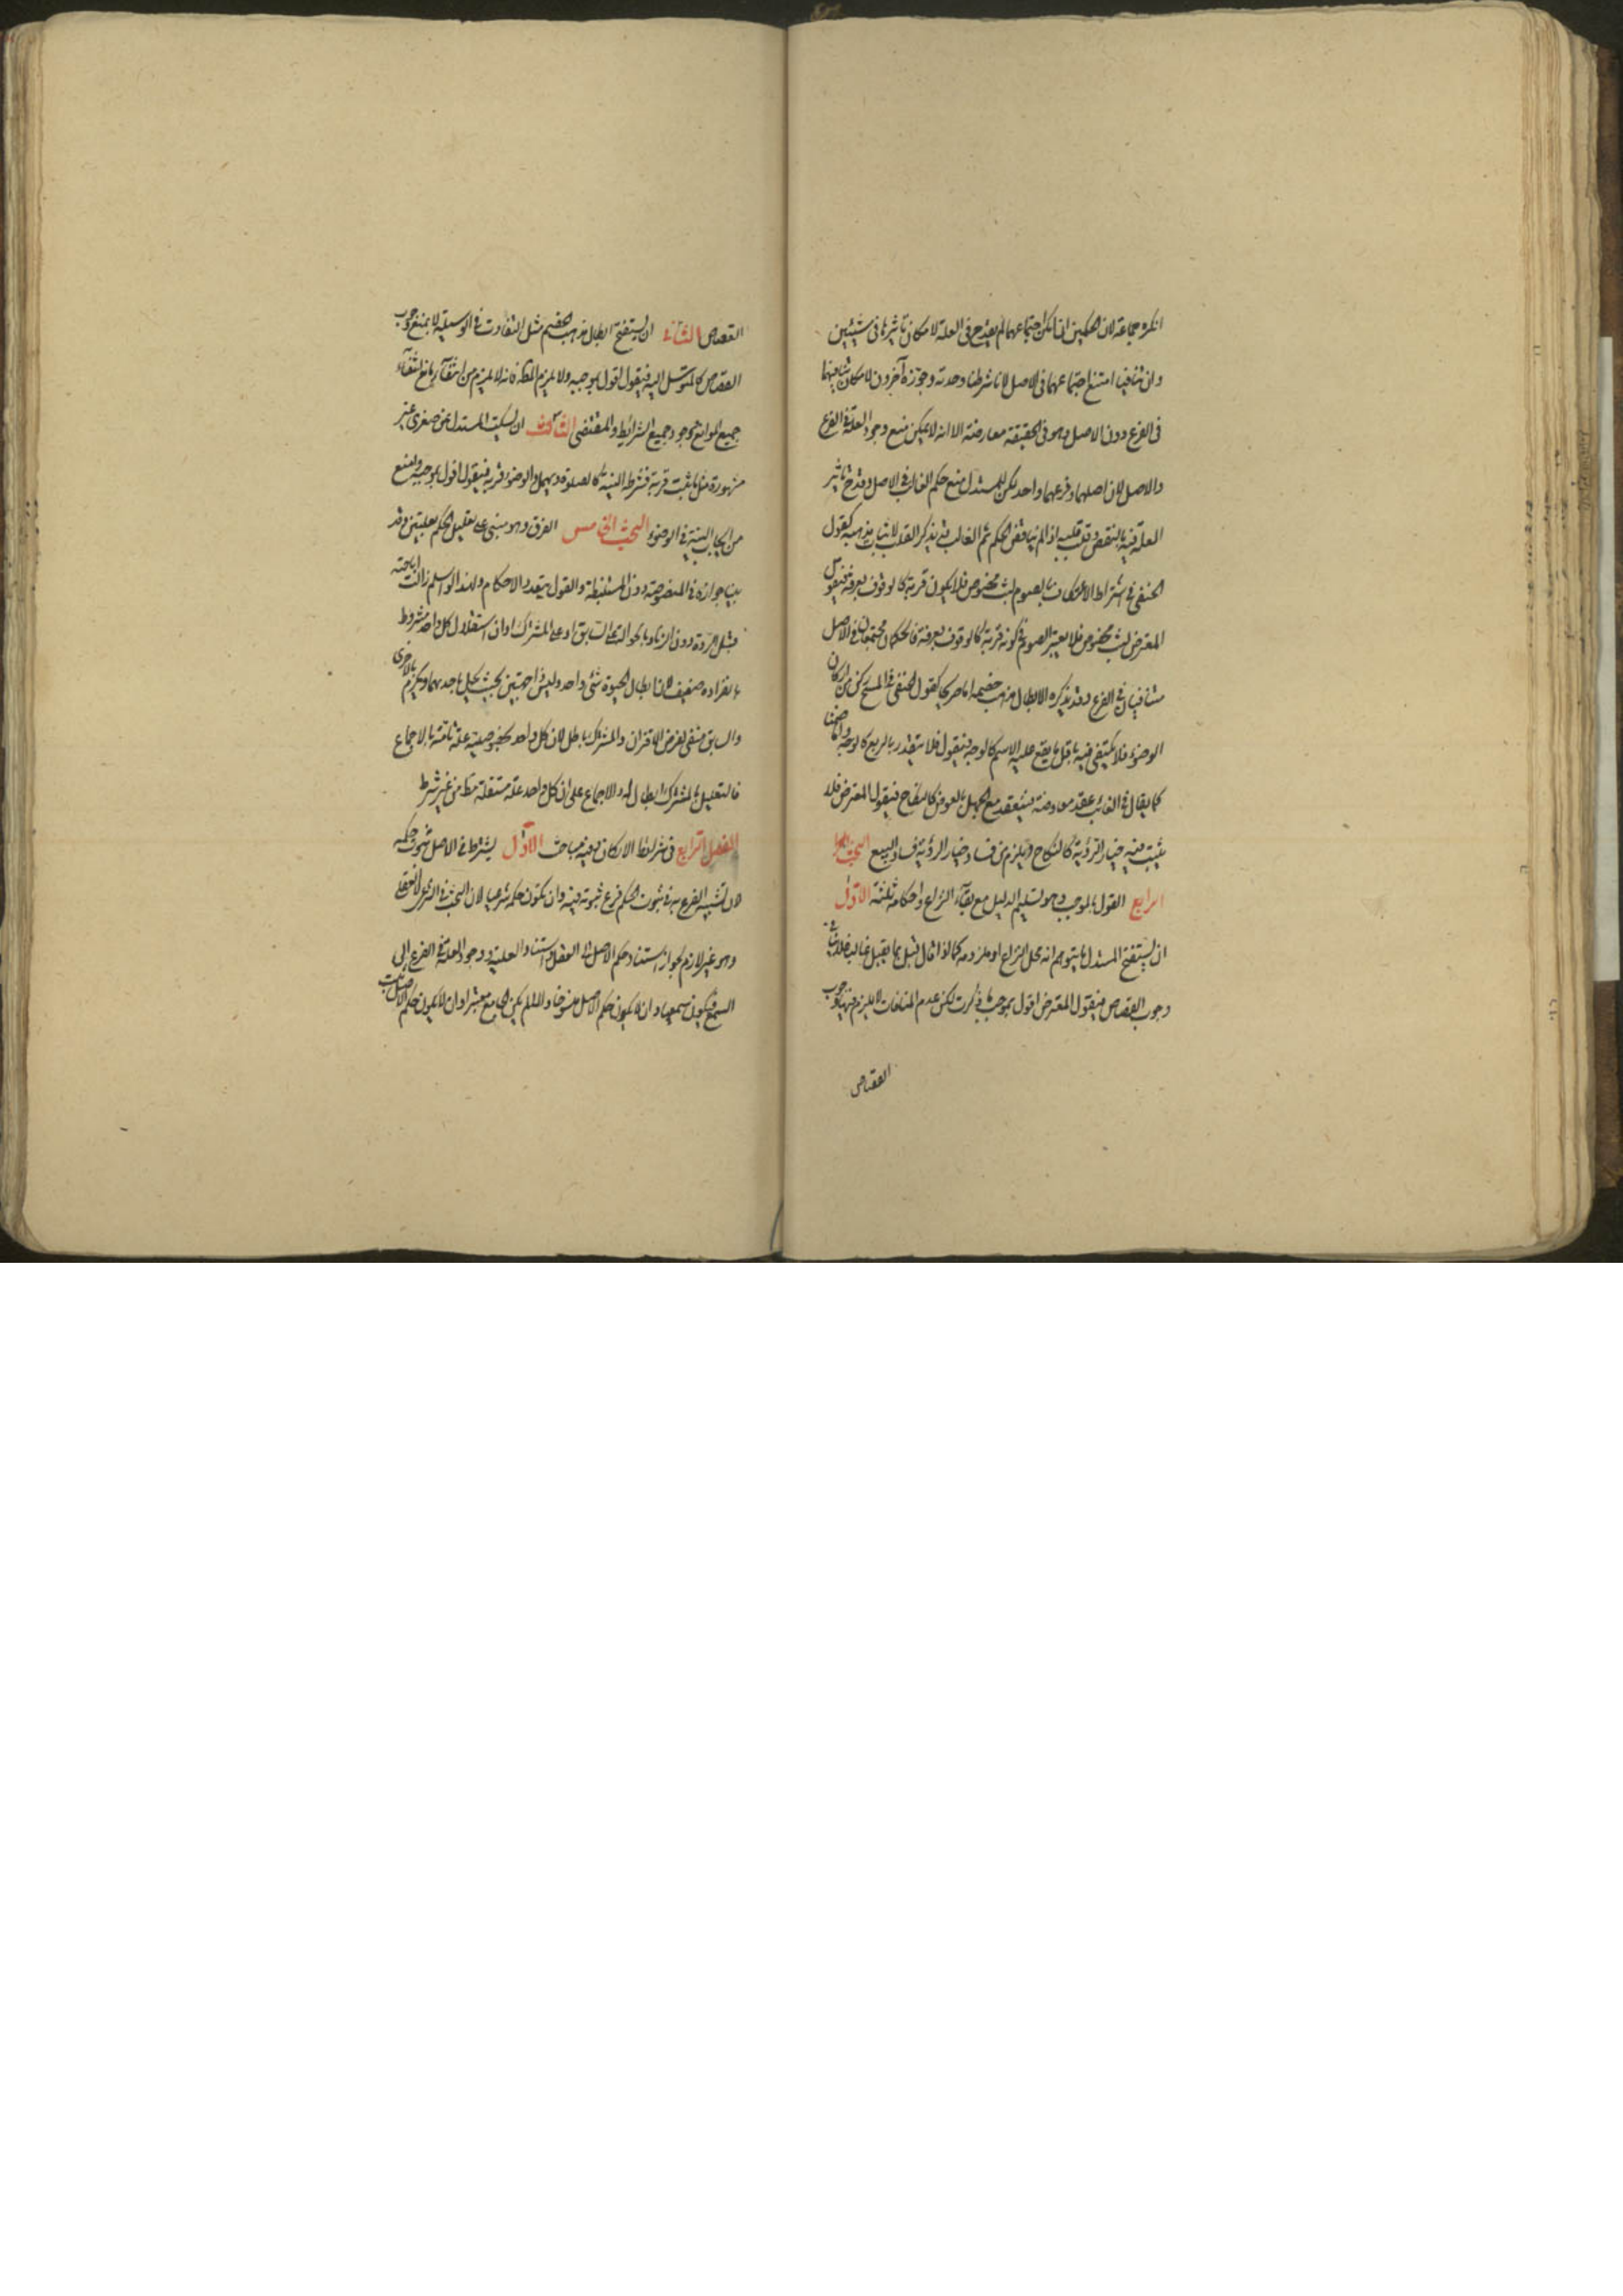 انكره جماعة لان الحكمين ان امكن اجتماعهما لم يقدح في العلة لامكان تاثيرها في شيئين
وان تنافيا امتنع اجتماعهما في الاصل لانا شرطنا وحدته وجوزه آخرون لامكان تنافيهما
في الفرع دون الاصل وهو في الحقيقة معارضة الا انه لا يمكن منع وجود العلة في الفرع
والاصل لان اصلهما وفرعهما واحد لكن للمستدل منع حكم القالب في الاصل وقدح تاثير
العلة فيه بالنقض وقلب قلبه اذا لم يناقض الحكم ثم القالب قد يذكر القلب لاثبات مذهبه كقول
الحنفي في اشتراط الاعتكاف بالصوم لبث مخصوص فلا يكون قربة كالوقوف بعرفة فيقول
المعترض لبث مخصوص فلا يعتبر الصوم في كونه قربة كالوقوف بعرفة فالحكمان مجتمعان في الاصل
متنافيان في الفرع وقد يذكره لابطال مذهب خصمه اما صريحا كقول الحنفي في المسح ركن من اركان
الوضوء فلا يكتفى فيه باقل ما يقع عليه الاسم كالوجه فيقول فلا يتقدر بالربع كالوجه واما ضمنا
كما يقال في الغائب عقد معاوضة فينعقد مع الجهل بالعوض كالنكاح فيقول المعترض فلا
يثبت فيه خيار الرؤية كالنكاح ويلزم من فساد خيار الرؤية فساد البيع البحث
الرابع القول بالموجب وهو تسليم الدليل مع بقاء النزاع واحكامه ثلثة الاول
ان يستنتج المستدل ما يتوهم انه محل النزاع او ملزومه كما لو قال قتل بما يقتل غالبا فلا ينافي
وجوب القصاص فيقول المعترض اقول بموجب ما ذكرت لكن عدم المنافات لا يلزم منها وجوب
القصاص
القصاص الثاني ان يستنتج ابطال مذهب الخصم مثل التفاوت في الوسيلة لا يمنع وجوب
القصاص كالمتوسل اليه فيقول اقول بموجبه ولا يلزم القصاص فانه لا يلزم من انتفاء مانع انتفاء
جميع الموانع ووجود جميع الشرائط والمقتضى الثالث ان يسكت المستدل عن صغرى غير
مشهورة مثل ما ثبت قربة فشرطه النية كالصلوة ويهمل والوضوء قربة فيقول اقول بموجبه وامنع
من ايجاب النية في الوضوء البحث الخامس الفرق وهو مبني على تعليل الحكم بعلتين وقد
بينا جوازه في المنصوصة دون المستنبطة والقول بتعدد الاحكام ولهذا لو اسلم زالت اباحته
قتل الردة دون الزنا وبالحوالة على السابق او على المشترك او ان استقلال كل واحد مشروط
بانفراده ضعيف لان ابطال الحيوة شئ واحد وليس ذا جهتين بحيث يحل باحديهما ويحرم بالاخرى
والسابق منفي لفرض الاقتران والمشترك باطل لان كل واحد بخصوصيته علة تامة بالاجماع
فالتعليل بالمشترك ابطال له والاجماع على ان كل واحد علة مستقلة مطلقا من غير شرط
الفصل الرابع في شرائط الاركان وفيه مباحث الاول يشترط في الاصل ثبوت حكمه
لان تشبيه الفرع به في ثبوت الحكم فرع ثبوته فيه وان يكون حكمه شرعيا لان البحث في الشرع لا العقلي
وهو غير لازم لجواز استناد حكم الاصل الى العقل واستناد العلية ووجود العلة في الفرع الى
السمع فيكون سمعيا وان لا يكون حكم الاصل منسوخا والا لم يكن الجامع معتبرا وان لا يكون حكم الاصل ثبت